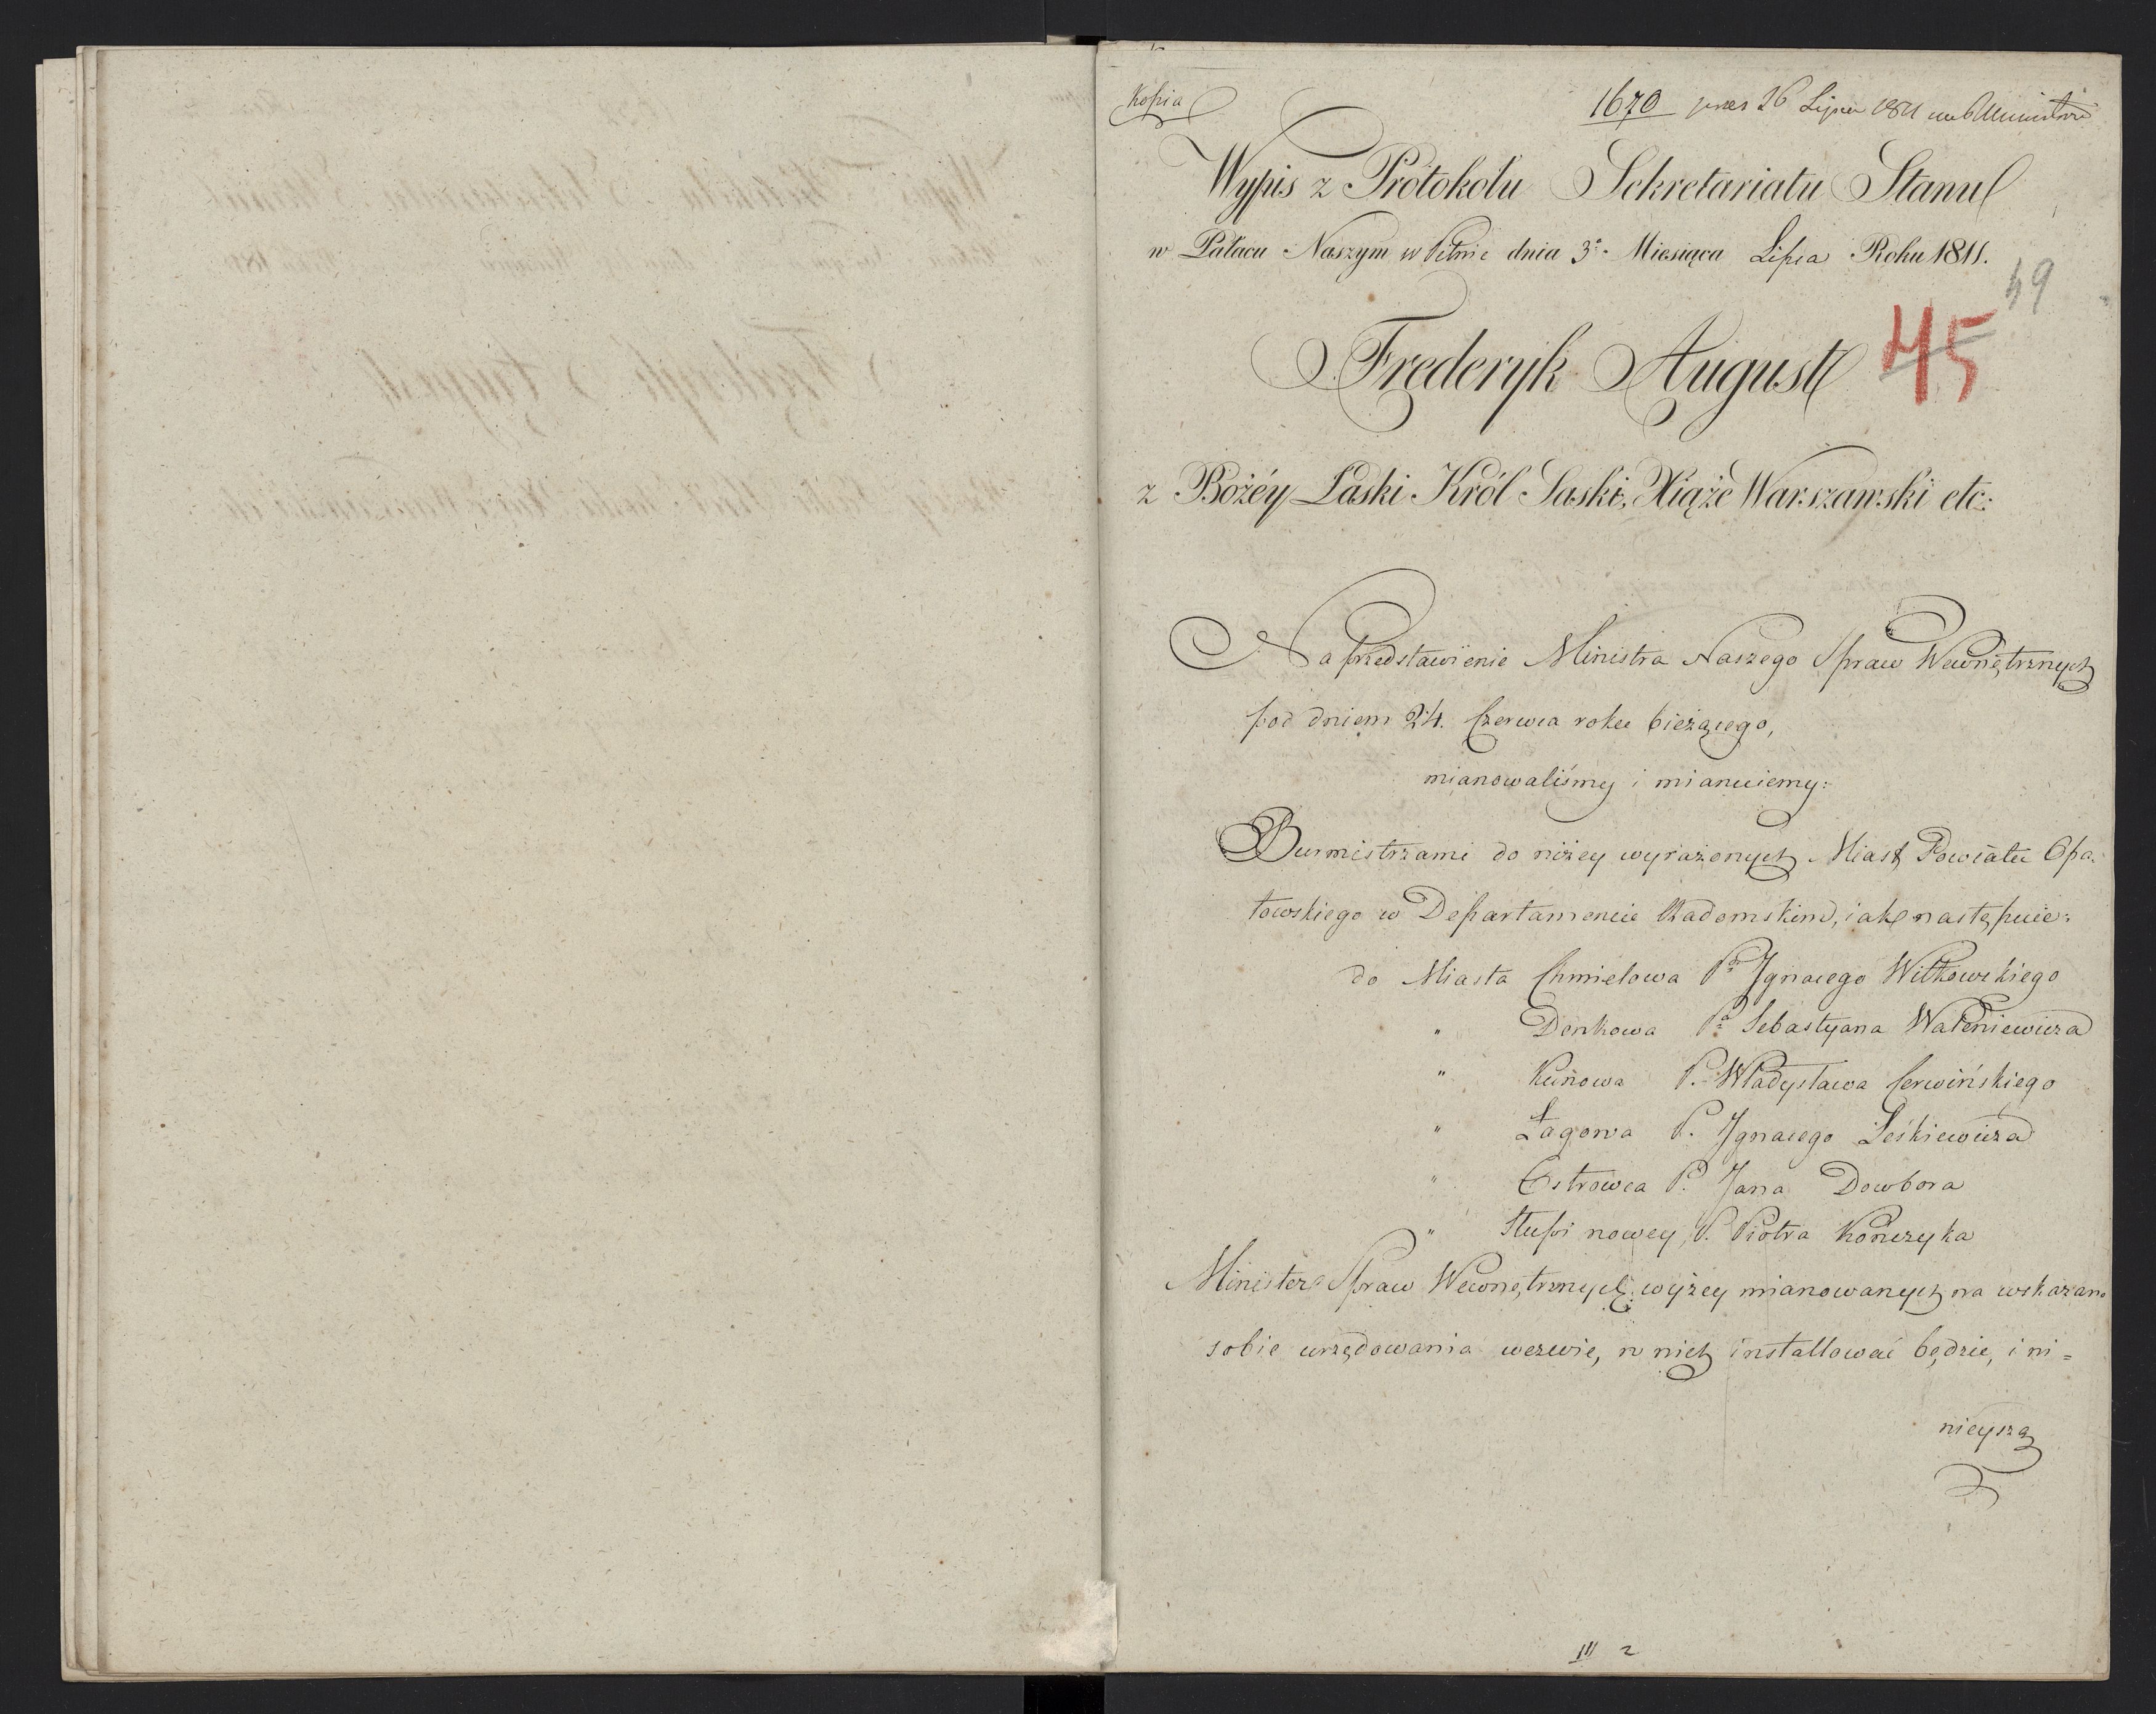 Kopia
1670 prez 26 Lipca 1811
Wypis z Protokołu Sekretariatu Stanu
w Pałacu Naszym w Pilnic dnia 3º Miesiąca Lipca Roku 1811.
49
Frederyk August
45
z Bożéy Łaski Król Saski, Xiąże Warszawski etc:
Na przedstawienie Ministra Naszego Spraw Wewnętrznych
pod dniem 24. Czerwca roku bieżącego,
mianowaliśmy i mianuiemy:
Burmistrzami do niżey wyrażonych Miast Powiatu Opa-
towskiego w Departamencie Radomskim, iak następuie:
do Miasta Chmielowa Pa Ignacego Witkowskiego
" Denkowa Pa Sebastyana Wałeniewicza
" Kunowa P. Władysława Cerwińskiego
" Łagowa P. Ignacego Leśkiewicza
" Ostrowca P. Jana Dowbora
" Słupi nowey P. Piotra Kończyka
Minister Spraw Wewnętrznych wyżey mianowanych na wskazane
sobie urzędowania wezwie, w nich installować będzie, i ni=
nieyszą
III 2